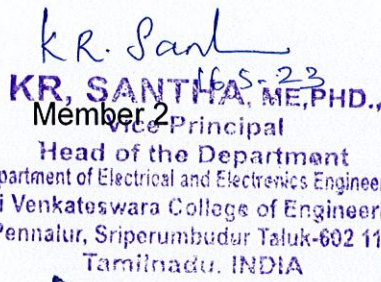 KR. Sant
16-5-23
KR, SANTHA, ME,PHD.,
Member 2
Vice Principal
Head of the Department
partment of Electrical and Electronics Engineer
i Venkateswara College of Engineer
Pennalur, Sriperumbudur Taluk-602 11
Tamilnadu. INDIA